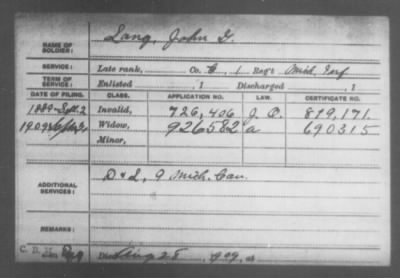 NAME OF SOLDIER: Lang, John G.
SERVICE: Late rank, Co. 1 Reg't Mich. Inf
TERM OF SERVICE: Enlisted , 1 Discharged , 1
DATE OF FILING. CLASS. APPLICATION NO. LAW. CERTIFICATE NO.
1889 Sept. 2 Invalid, 726,406 J. O. 819,171.
1909 Widow, 926582 a 690315
Minor,
ADDITIONAL SERVICES: D & L, 9 Mich. Cav.
REMARKS:
C. D. H. Died Aug 28, 1909, at